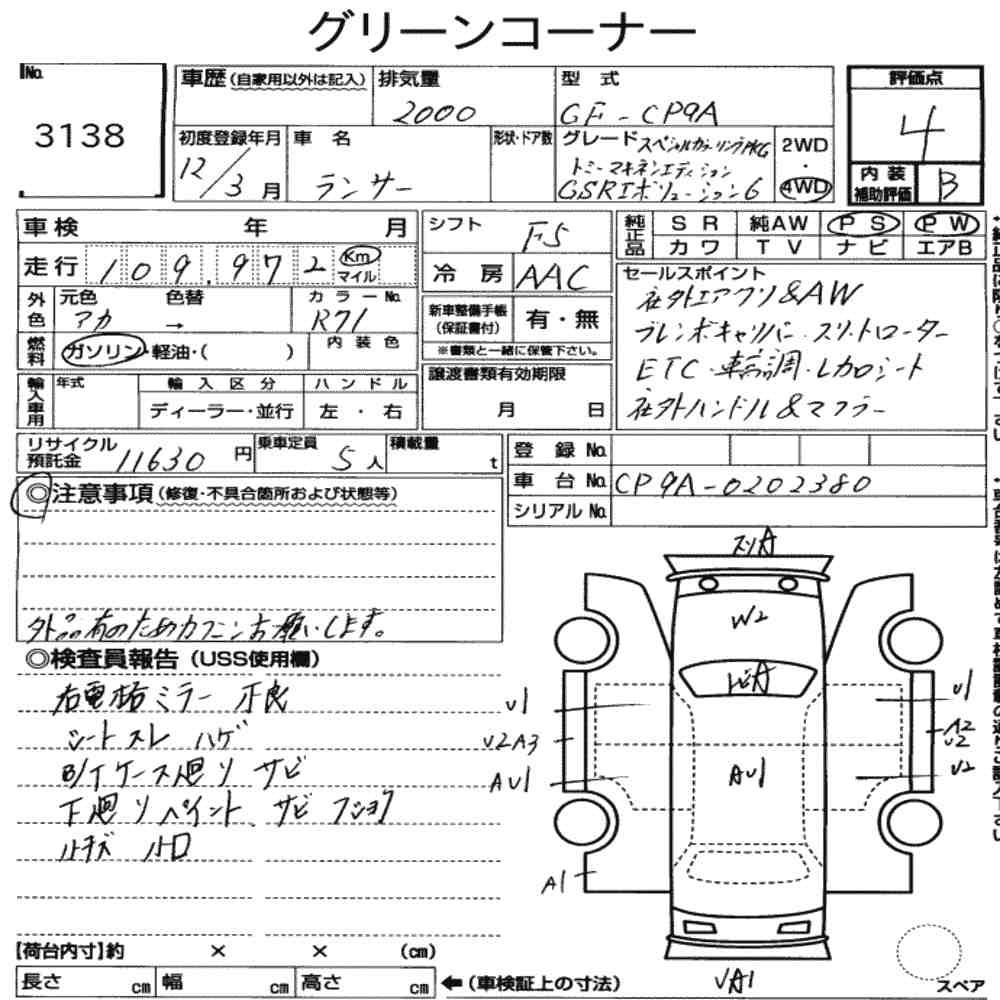 グリーンコーナー
No.
3138
車歴 (自家用以外は記入)
排気量
2000
型式
GF-CP9A
評価点
4
初度登録年月
12/3月
車名
ランサー
形状・ドア数
グレード スペシャルカラーリングPKG
トミーマキネンエディション
GSRエボリューション6
2WD
・
4WD
内装
補助評価
B
車検 年 月
走行 109,972 Km
マイル
シフト
F5
冷房
AAC
純正品
SR 純AW PS PW
カワ TV ナビ エアB
外色
元色 色替
アカ →
カラーNo.
R71
燃料
ガソリン・軽油・( )
内装色
新車整備手帳
(保証書付)
有・無
※書類と一緒に保管下さい。
セールスポイント
社外エアクリ&AW
ブレンボキャリパー・スリットローター
ETC・車高調・レカロシート
社外ハンドル&マフラー
輸入車用
年式
輸入区分
ディーラー・並行
ハンドル
左・右
譲渡書類有効期限
月 日
リサイクル
預託金
11630円
乗車定員
5人
積載量
t
登録No.
車台No.
CP9A-0202380
シリアルNo.
◎注意事項(修復・不具合箇所および状態等)
外品有のためカクニンお願いします。
◎検査員報告(USS使用欄)
右電格ミラー不良
シートスレ ハゲ
B/Tケース廻リ サビ
下廻リペイント、サビ フショク
小キズ 小凹
スリA
W2
トビA
U1
U2A3
AU1
A1
AU1
U1
A2
U2
U2
UA1
スペア
【荷台内寸】約 × × (cm)
長さ cm 幅 cm 高さ cm ←(車検証上の寸法)